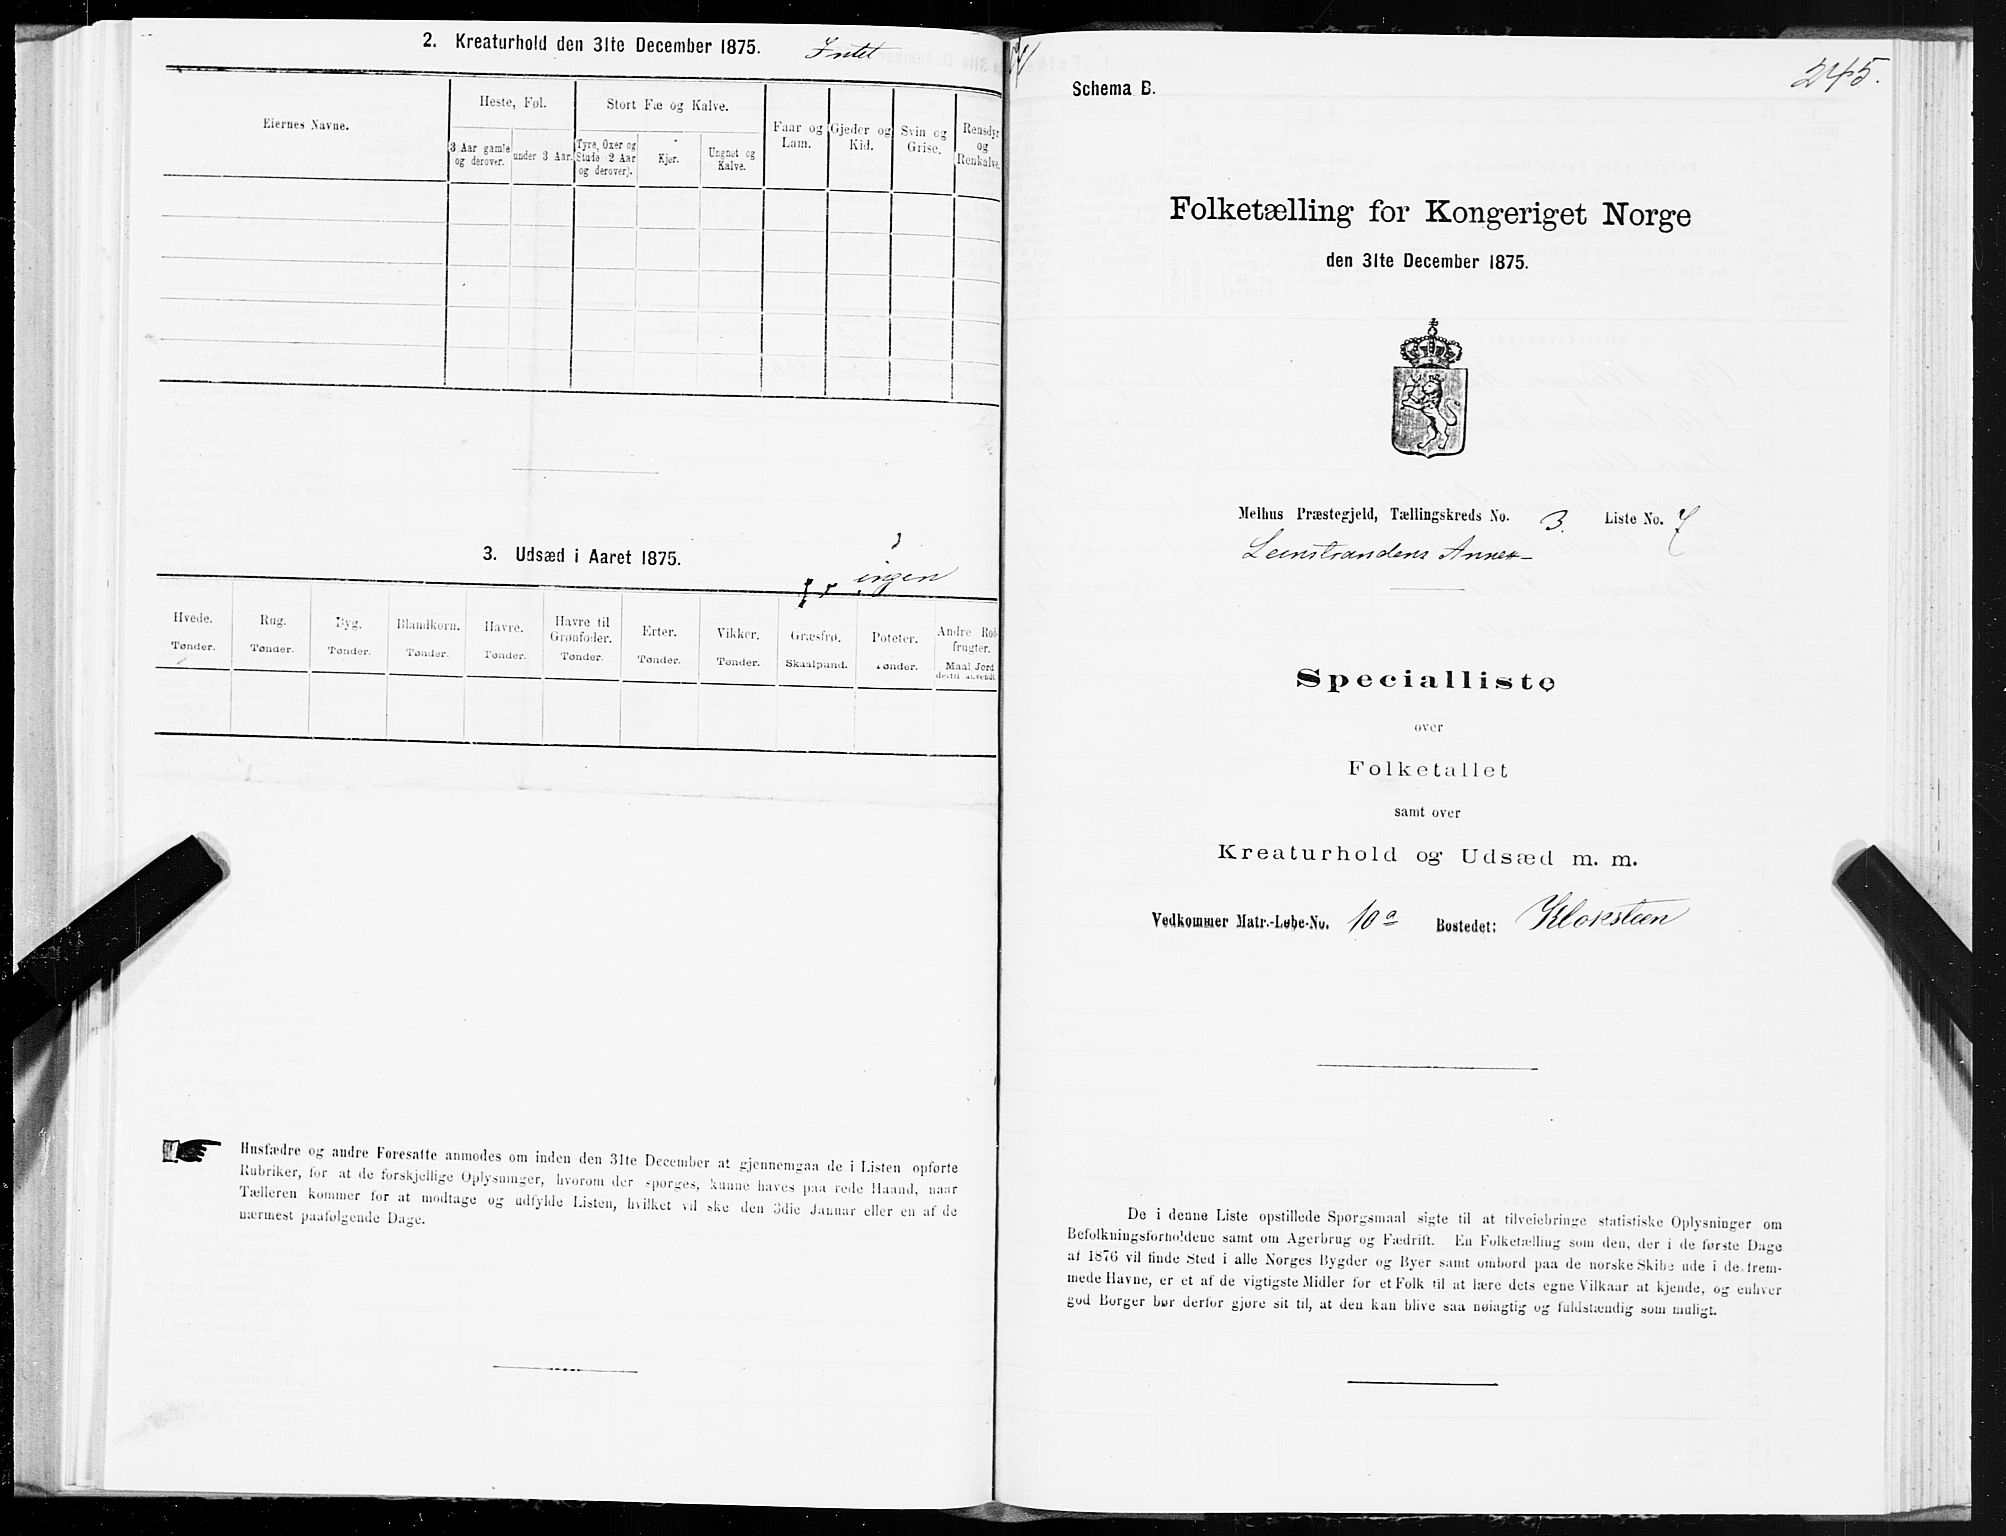 2. Kreaturhold den 31te December 1875. Intet
Eiernes Navne.
Heste, Føl.
Stort Fæ og Kalve.
Faar og Lam.
Gjeder og Kid.
Svin og Grise.
Rensdyr og Renkalve.
3 Aar gamle og derover.
under 3 Aar.
Tyre, Oxer og Studo (2 Aar og derover).
Kjør.
Ungnøt og Kalve.
3. Udsæd i Aaret 1875. ingen
Hvede. Tønder.
Rug. Tønder.
Byg. Tønder.
Blandkorn. Tønder.
Havre. Tønder.
Havre til Grønfoder. Tønder.
Erter. Tønder.
Vikker. Tønder.
Græsfrø. Skaalpund.
Poteter. Tønder.
Andre Rodfrugter. Maal Jord dertil anvendt.
Husfædre og andre Foresatte anmodes om inden den 31te December at gjennemgaa de i Listen opførte
Rubriker, for at de forskjellige Oplysninger, hvorom der spørges, kunne haves paa rede Haand, naar
Tælleren kommer for at modtage og udfylde Listen, hvilket vil ske den 3die Januar eller en af de
nærmest paafølgende Dage.
245.
Schema B.
Folketælling for Kongeriget Norge
den 31te December 1875.
Melhus Præstegjeld, Tællingskreds No. 3. Liste No. 7
Leinstrandens Annex
Specialliste
over
Folketallet
samt over
Kreaturhold og Udsæd m. m.
Vedkommer Matr.-Løbe-No. 10a Bostedet: Kloksteen
De i denne Liste opstillede Spørgsmaal sigte til at tilveiebringe statistiske Oplysninger om
Befolkningsforholdene samt om Agerbrug og Fædrift. En Folketælling som den, der i de første Dage
af 1876 vil finde Sted i alle Norges Bygder og Byer samt ombord paa de norske Skibe ude i de frem-
mede Havne, er et af de vigtigste Midler for et Folk til at lære dets egne Vilkaar at kjende, og enhver
god Borger bør derfor gjøre sit til, at den kan blive saa nøiagtig og fuldstændig som muligt.